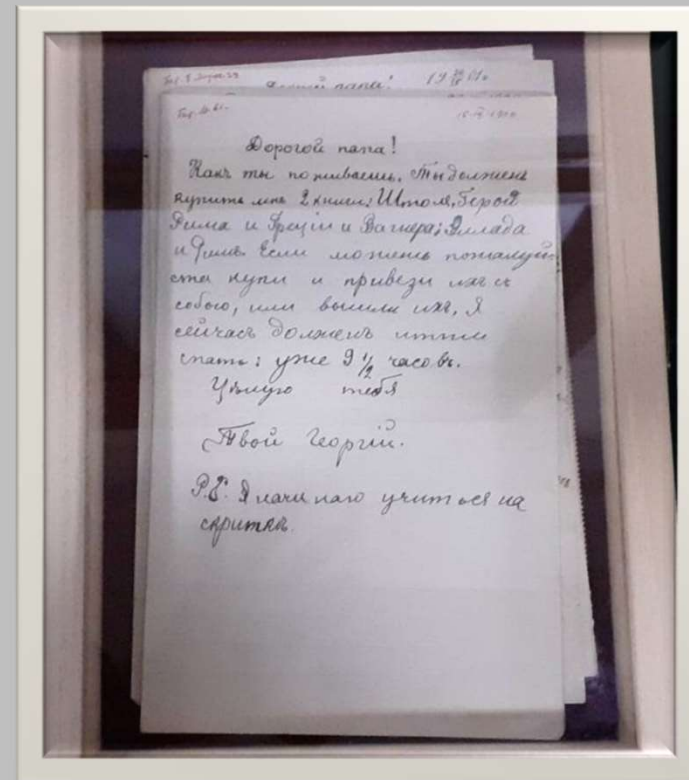 папа! 19 01.
Дорогой папа!
Какъ ты поживаешь. Ты долженъ
купить мнѣ 2 книги: Штоля, Герои
Рима и Греціи и Вагнера: Эллада
и Римъ. Если можешь пожалуй-
ста купи и привези ихъ съ
собою, или вышли ихъ. Я
сейчасъ долженъ итти
спать: уже 9 1/2 часовъ.
Цѣлую тебя
Твой Георгій.
P.S. Я начинаю учиться на
скрипкѣ.